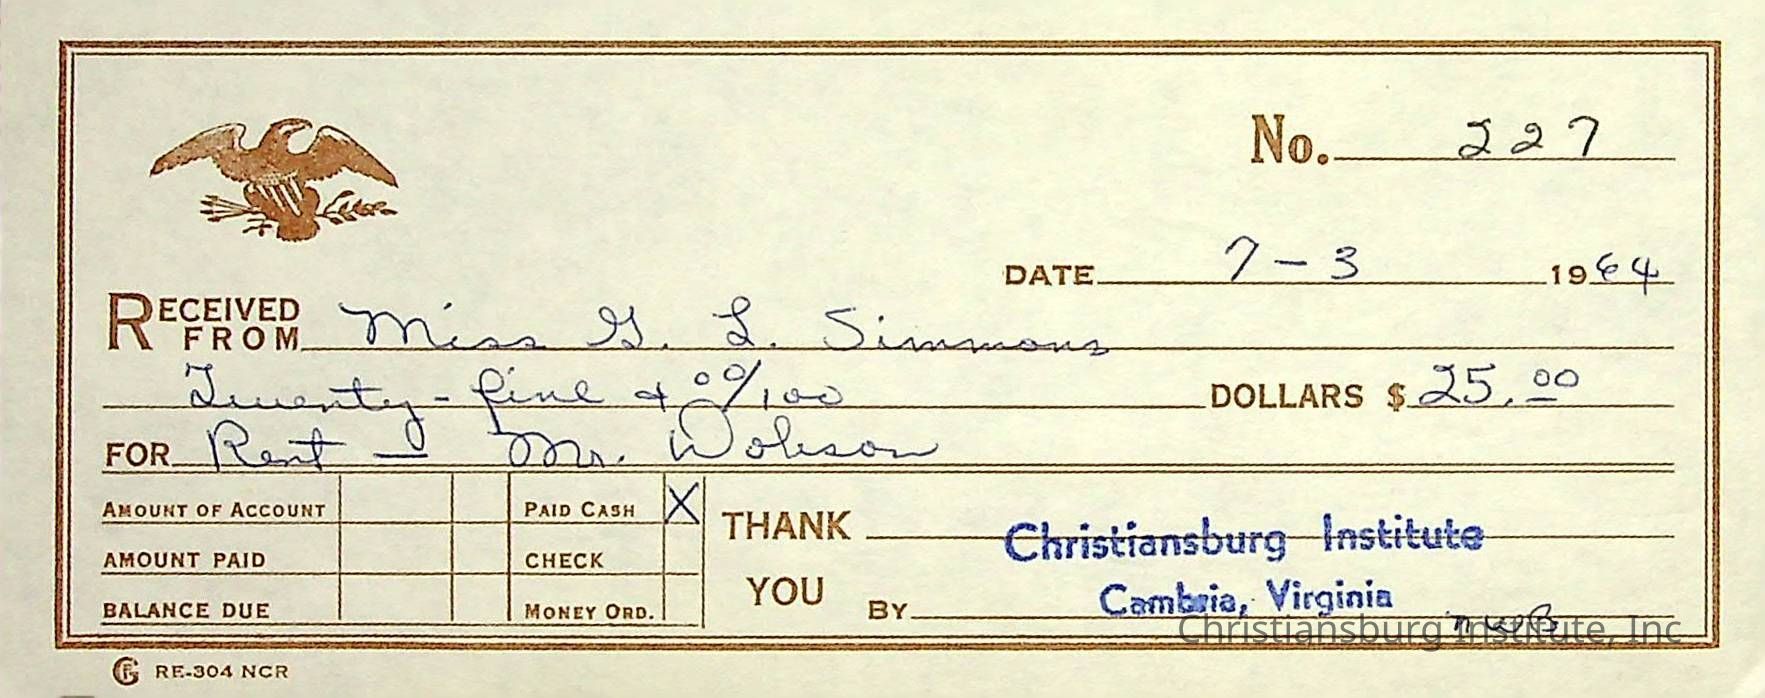 No. 227
DATE 7-3 1964
RECEIVED FROM Miss G. L. Simmons
Twenty-five & 00/100 DOLLARS $ 25.00
FOR Rent - Mr. Dobson
AMOUNT OF ACCOUNT PAID CASH X
AMOUNT PAID CHECK
BALANCE DUE MONEY ORD.
THANK YOU
Christiansburg Institute
BY Cambria, Virginia
nwB
Christiansburg Institute, Inc
RE-304 NCR